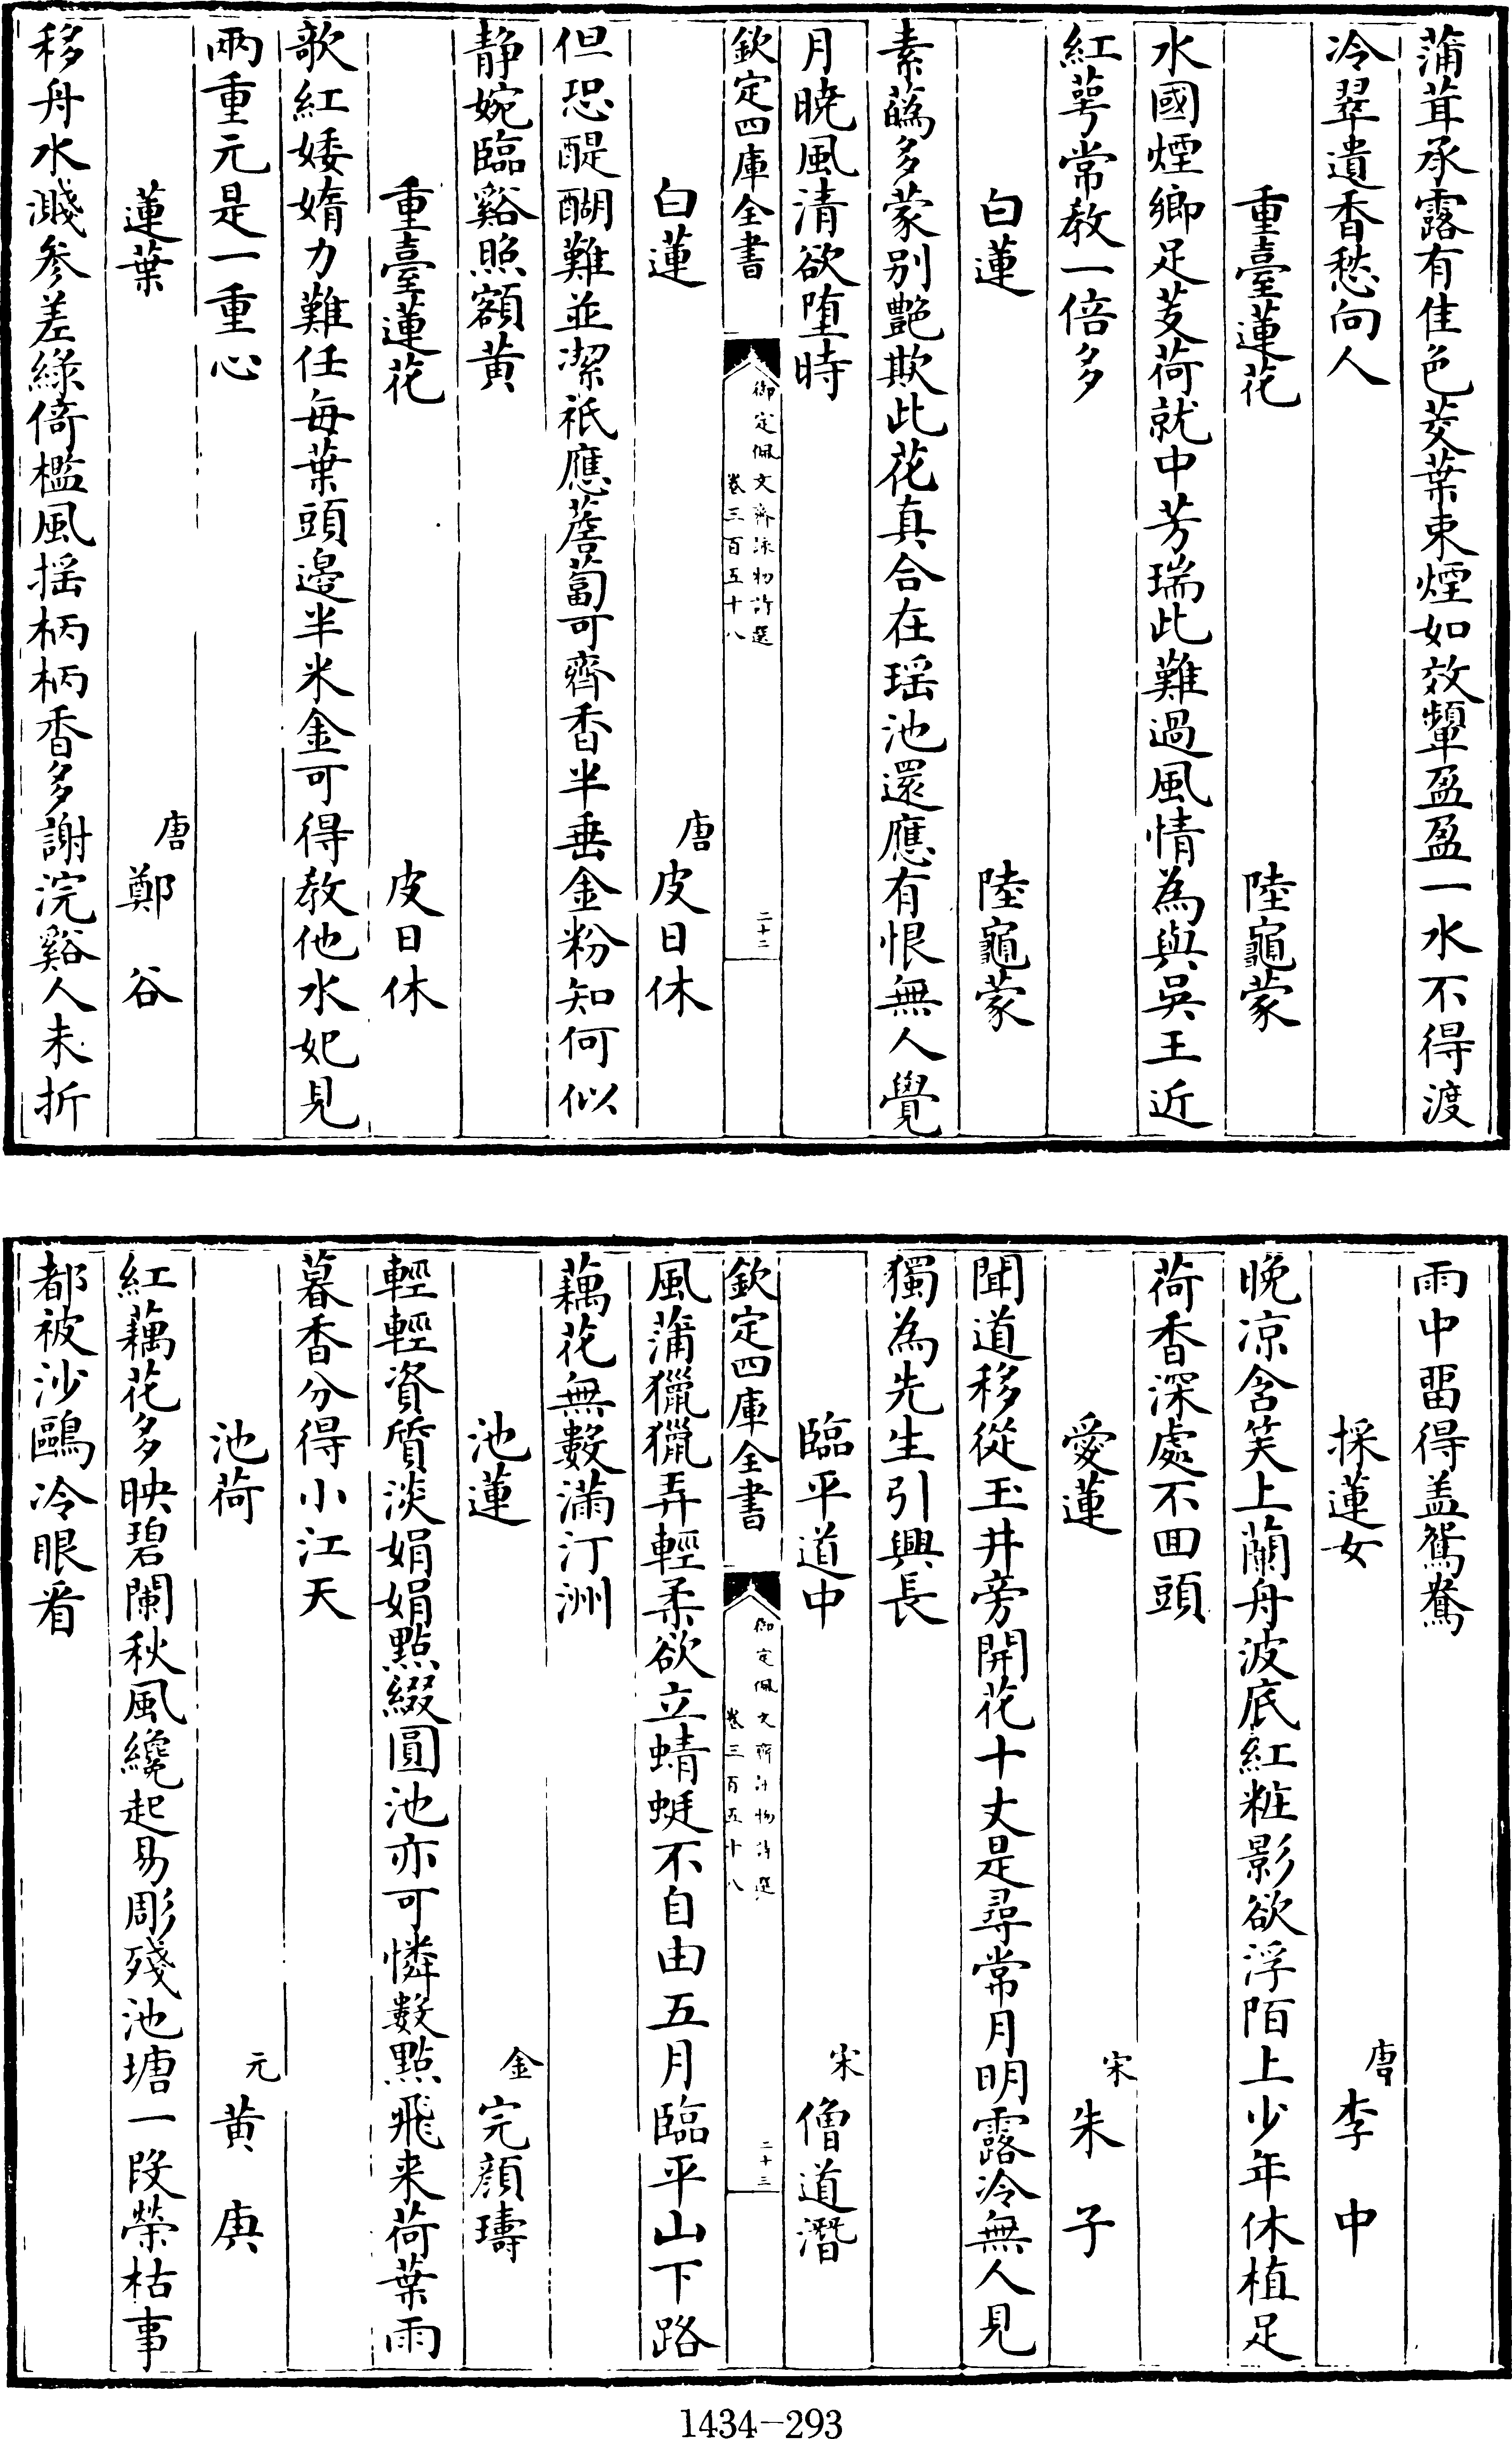 蒲茸承露有佳色茭葉束煙如效顰盈盈一水不得渡
冷翠遺香愁向人
重臺蓮花　陸龜蒙
水國煙鄉足芰荷就中芳瑞此難過風情為與吳王近
紅萼常教一倍多
白蓮　陸龜蒙
素蘤多蒙别艶欺此花真合在瑶池還應有恨無人覺
月曉風清欲墮時
欽定四庫全書
御定佩文齋詠物詩選
卷三百五十八
二十二
白蓮　唐皮日休
但恐醍醐難並潔祇應薝蔔可齊香半垂金粉知何似
静婉臨谿照額黄
重臺蓮花　皮日休
歌紅婑媠力難任每葉頭邉半米金可得教他水妃見
兩重元是一重心
蓮葉　唐鄭谷
移舟水濺參差緑倚檻風揺柄柄香多謝浣谿人未折
雨中畱得盖鴛鴦
採蓮女　唐李中
晚凉含笑上蘭舟波底紅粧影欲浮陌上少年休植足
荷香深處不囬頭
愛蓮　宋朱子
聞道移從玉井旁開花十丈是尋常月明露冷無人見
獨為先生引興長
臨平道中　宋僧道潛
欽定四庫全書
御定佩文齋詠物詩選
卷三百五十八
二十三
風蒲獵獵弄輕柔欲立蜻蜓不自由五月臨平山下路
藕花無數滿汀洲
池蓮　金完顔璹
輕輕資質淡娟娟點綴圓池亦可憐數點飛来荷葉雨
暮香分得小江天
池荷　元黄庚
紅藕花多映碧闌秋風纔起易彫殘池塘一段榮枯事
都被沙鷗冷眼看
1434-293